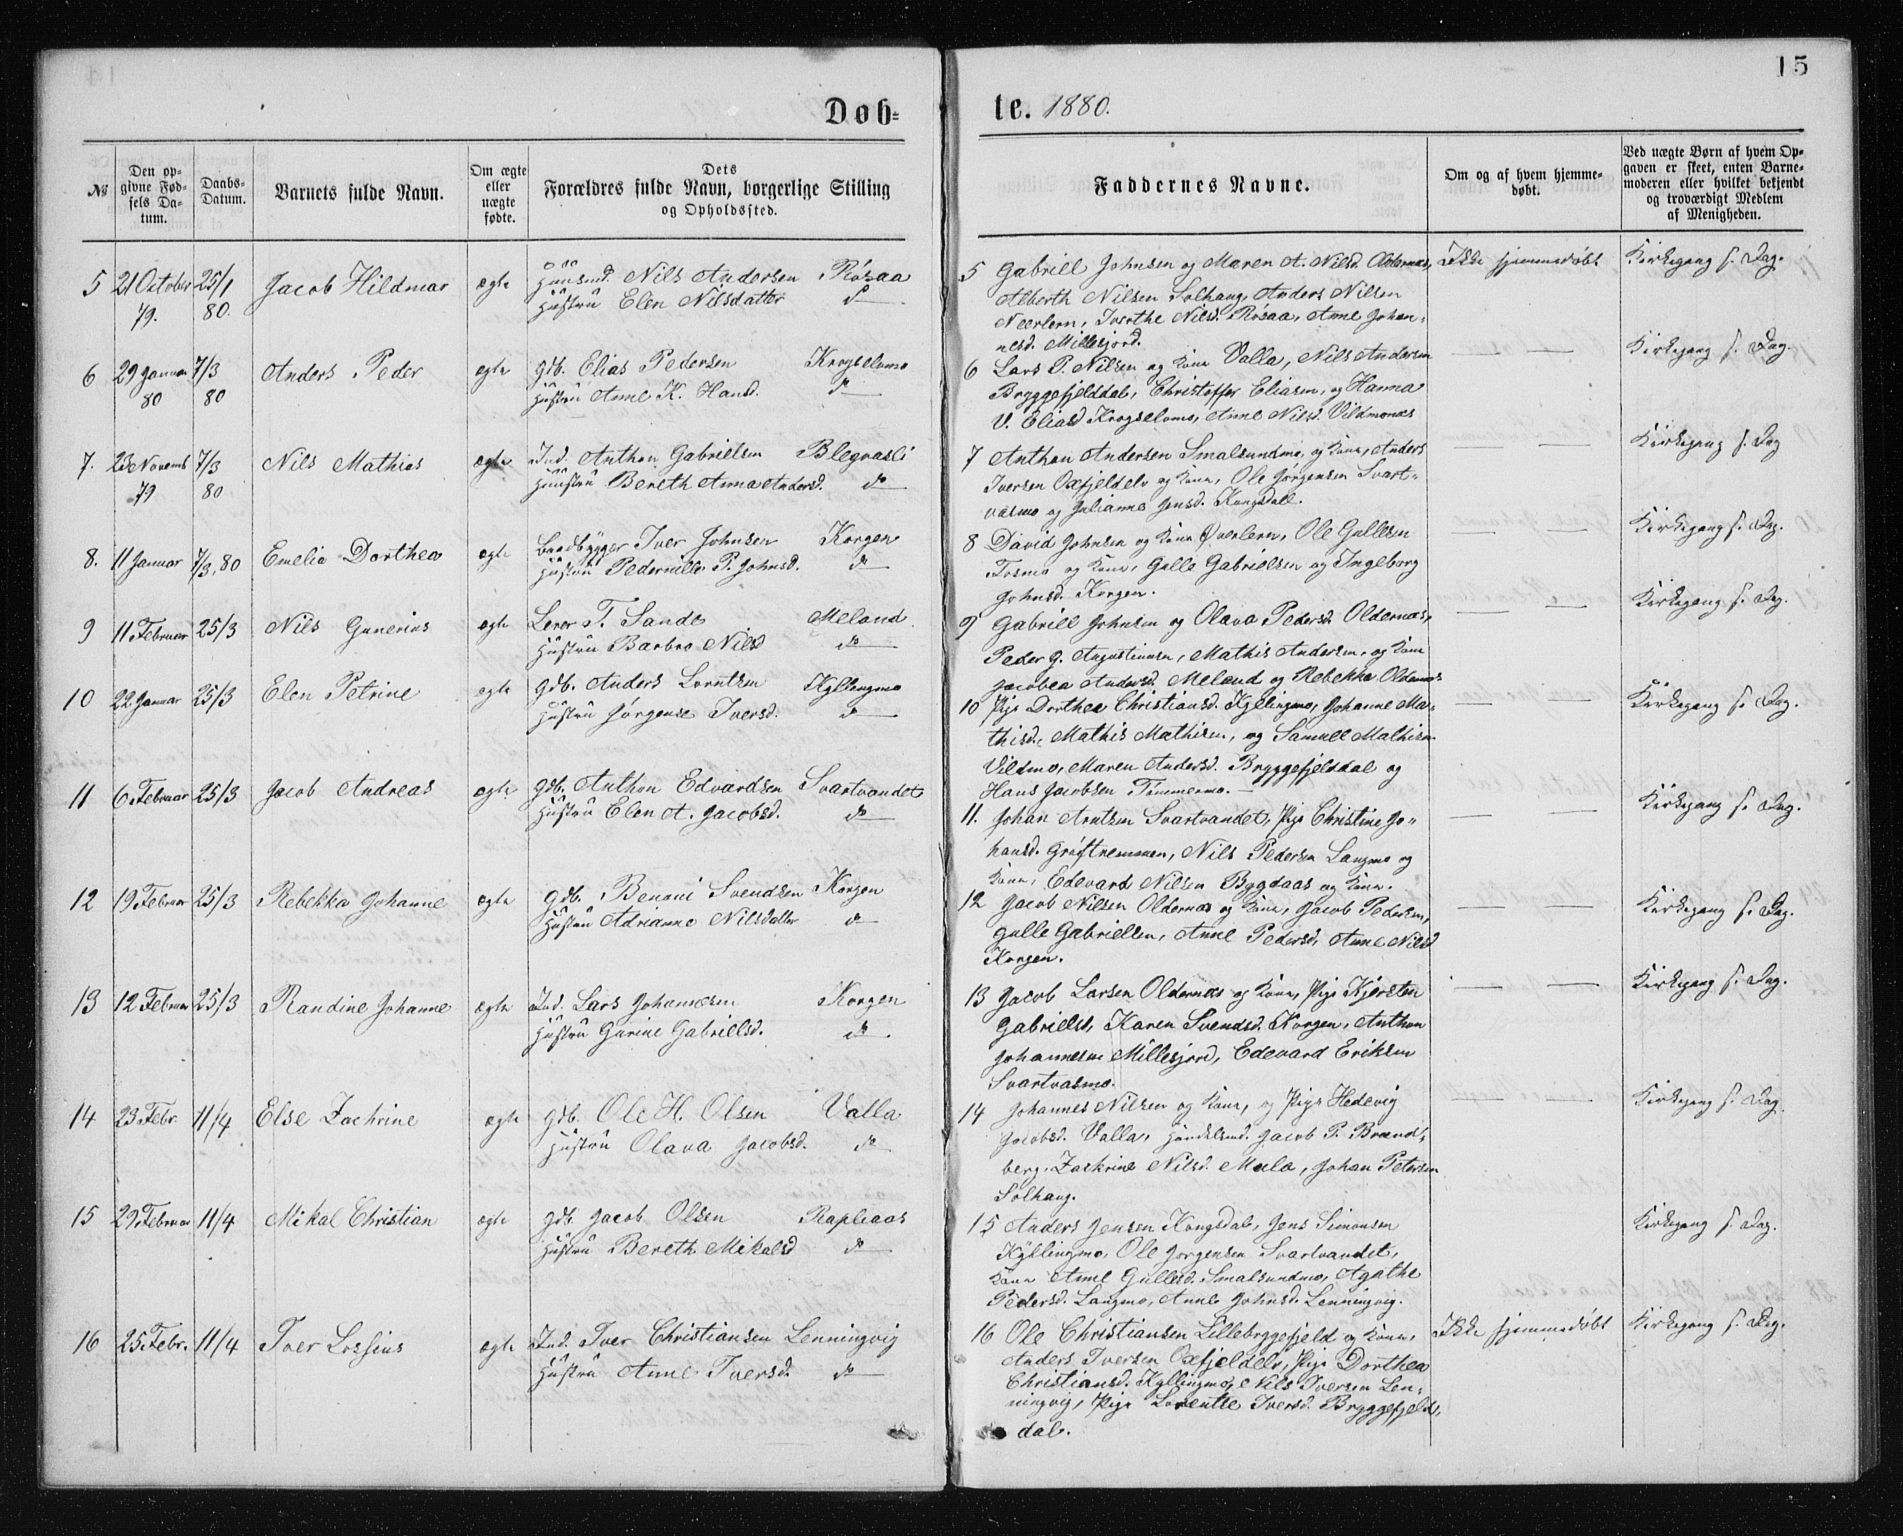 15
Døb=
te. 1880.
№
Den op-
givne Fød-
sels Da-
tum.
Daabs-
Datum.
Barnets fulde Navn.
Om ægte
eller
uægte
fødte.
Dets
Forældres fulde Navn, borgerlige Stilling
og Opholdssted.
Faddernes Navne.
Om og af hvem hjemme-
døbt.
Ved uægte Børn af hvem Op-
gaven er skeet, enten Barne-
moderen eller hvilket bekjendt
og troværdigt Medlem
af Menigheden.
5 21 October 25/1 Jacob Hildmar ægte Huusmd. Nils Andersen Røsaa
79. 80. Hustru Elen Nilsdatter do
5 Gabriel Johnsen og Maren A. Nilsd. Oldernæs, Ikke hjemmedøbt Kirkegang s. Dag.
Alberth Nilsen Solhaug, Anders Nilsen
Nærlern, Dorthe Nilsd. Røsaa, Anne Johan-
nesd. Millesjord.
6 29 Januar 7/3 Anders Peder ægte Gdb. Elias Pedersen Krogselvmo
80 80 Hustru Anne K. Hansd. do
6 Lars P. Nilsen og Kone Valla, Nils Andersen Kirkegang s. Dag.
Bryggefjelddal, Christoffer Eliasen, og Hanna
V. Eliasd Krogselvmo, Anne Nilsd. Vildmones
7. 23 Novemb 7/3 Nils Mathias ægte Ind. Anthon Gabrielsen Blegvasli
79 80 Hustru Bereth Anna Andersd. do
7 Anthon Andersen Smalsundmo, og Kone, Anders Kirkegang s. Dag
Iversen Oxfjeldelv og Kone, Ole Jørgensen Svart-
vasmo og Julianne Jensd. Kongsdal.
8. 11 Januar 7/3, 80 Emelie Dorthea ægte Baadbygger Iver Johnsen Korgen
Hustru Pedernille P. Johnsd. do
8 David Johnsen og Kone Øverlern, Ole Gullesen Kirkegang s. Dag.
Tosmo og Kone, Gulle Gabrielsen og Ingeborg
Johnsd. Korgen.
9 11 Februar 25/3 Nils Gunerius ægte Lerer T. Sande Meland.
Hustru Barbro Nilsd do
9 Gabriel Johnsen og Olava Pedersd. Oldernæs, Kirkegang s. Dag.
Peder G. Augustinusen, Mathis Andersen, og Kone
Jacobea Andersd. Meland og Rebekka Oldernæs
10 22 Januar 25/3 Elen Petrine ægte Gdb. Anders Lorntsen Kyllingmo
Hustru Jørgense Iversd. do
10 Pige Dorthea Christiansd. Kyllingmo, Johanne Ma- Kirkegang s. Dag.
thisd., Mathis Mathisen, og Samuel Mathisen
Vildmo, Maren Andersd. Bryggefjelddal og
Hans Jacobsen Timmermo.
11 6 Februar 25/3 Jacob Andreas ægte Gdb. Anthon Edvardsen Svartvandet
Hustru Elen A. Jacobsd. do
11. Johan Arntsen Svartvandet, Pige Christine Jo- Kirkegang s. Dag.
hansd. Grøftremmen, Nils Pedersen Langmo og
Kone, Edevard Nilsen Bygdaas og Kone.
12 19 Februar 25/3 Rebekka Johanne ægte Gdb. Benoni Svendsen Korgen
Hustru Adrianne Nilsdatter do
12 Jacob Nilsen Oldernæs og Kone, Jacob Pedersen, Kirkegang s. Dag.
Gulle Gabrielsen, Anne Pedersd, Anne Nilsd
Korgen.
13 12 Februar 25/3 Randine Johanne ægte Ind. Lars Johannesen Korgen
Hustru Gurine Gabrielsd. do
13 Jacob Larsen Oldernæs og Kone, Pige Kjersten Kirkegang s. Dag.
Gabrielsd, Karen Svendsd. Korgen, Anthon
Johannesen Millesjord, Edevard Eriksen
Svartvasmo.
14 23 Febr. 11/4 Else Zachrine ægte Gdb. Ole H. Olsen Valla
Hustru Olava Jacobsd. do
14 Johannes Nilsen og Kone, og Pige Hedevig Kirkegang s. Dag.
Jacobsd. Valla, Handelsmd. Jacob P. Brandt-
berg, Zachrine Nilsd. Mula, Johan Petersen
Solhaug.
15 29 Februar 11/4 Mikal Christian ægte Gdb. Jacob Olsen Rapliaas
Hustru Bereth Mikalsd do
15 Anders Jensen Kongsdal, Jens Simonsen Kirkegang s. Dag.
Kyllingmo, Ole Jørgensen Svartvandet,
Kone Anne Gullesd. Smalsundmo, Agathe
Pedersd. Langmo, Anne Johnsd. Lenningvig.
16 25 Febr. 11/4 Iver Lossius ægte Ind. Iver Christiansen Lenningvig
Hustru Anne Iversd. do
16 Ole Christiansen Lillebryggefjeld og Kone, Ikke hjemmedøbt Kirkegang s. Dag.
Anders Iversen Oxfjeldelv, Pige Dorthea
Christiansd. Kyllingmo, Nils Iversen Len-
ningvig, Pige Lorentse Iversd. Bryggefjeld-
dal.